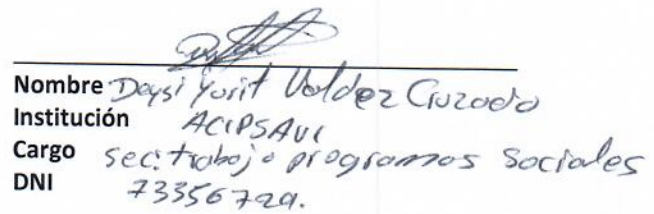 Nombre Deysi Yorit Valdez Cruzado
Institución ACIPSAVI
Cargo sec. trabajo programas Sociales
DNI 73356729.